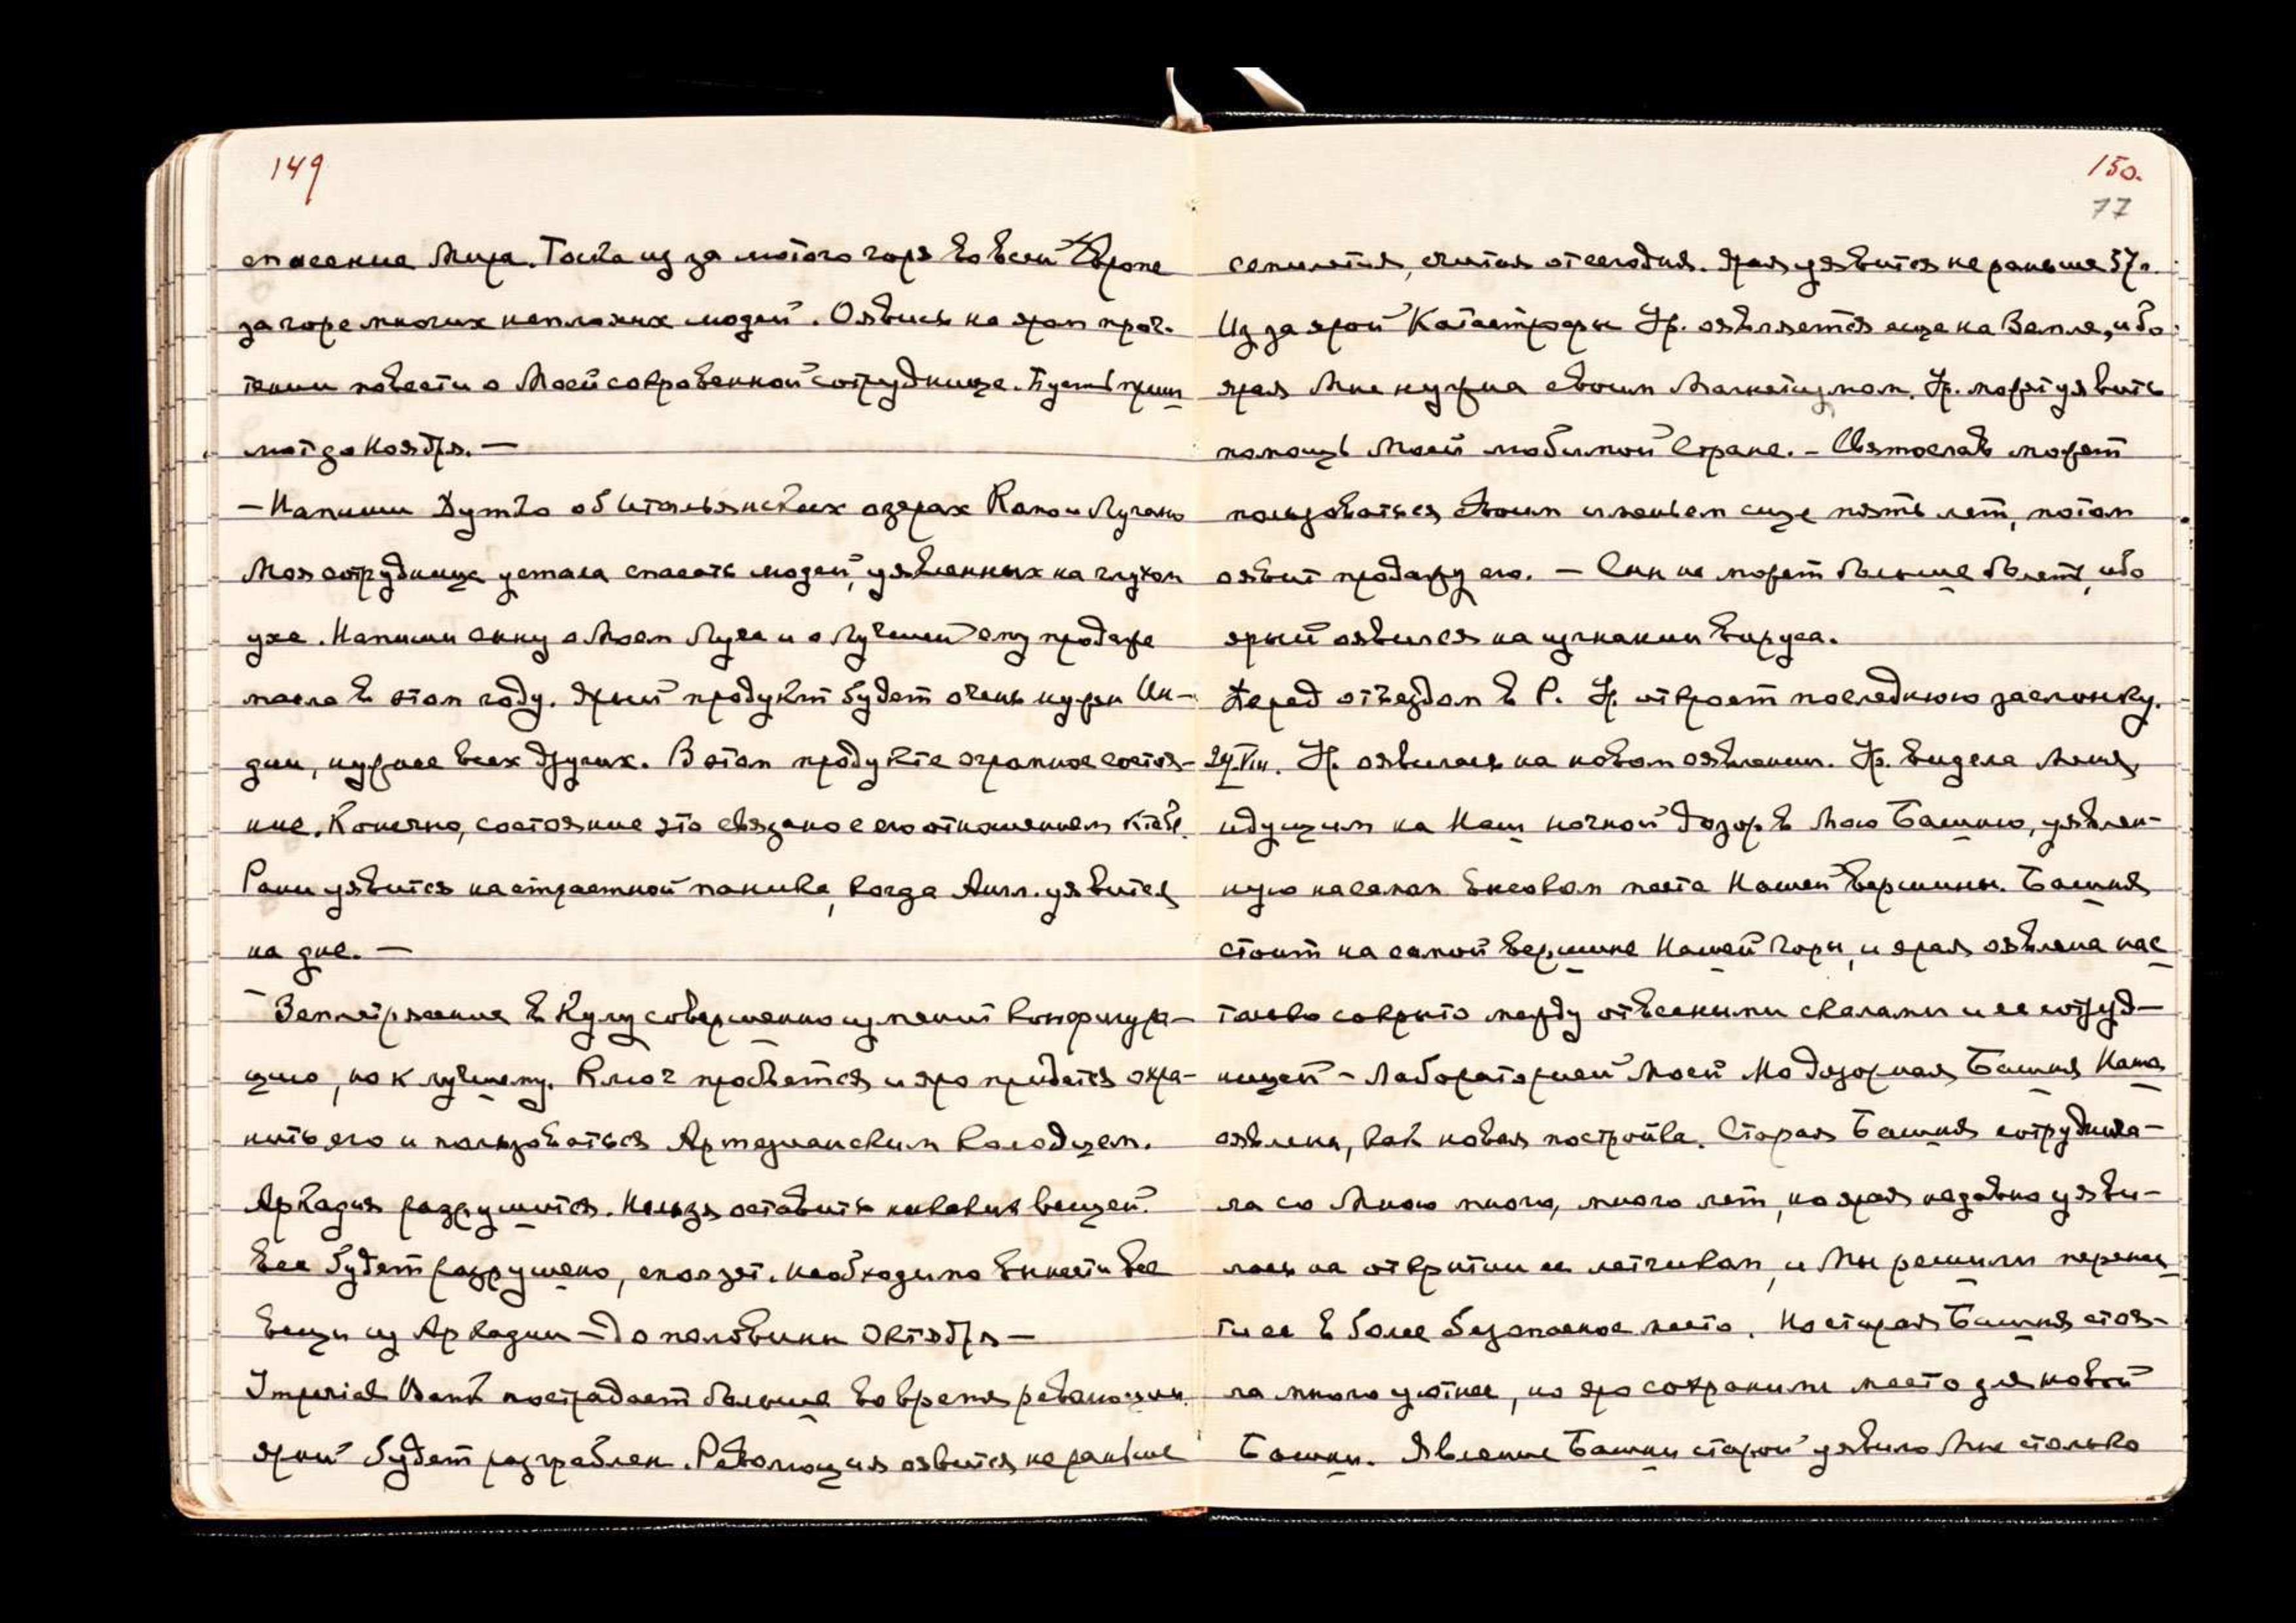 149
спасение Мира. Тоска из за лютого горя во всей Европе
за горе многих неплохих людей. Оявись на яром проч-
тении повести о Моей сокровенной сотруднице. Пусть прим
лют до Ноября. —
— Напиши Дутко об Итальянских озерах Комо и Лугано
Моя сотрудница устала спасать людей, уявленных на глухом
ухе. Напиши сыну о Моем Луче и о лучшей ему продаже
масла в этом году. Ярый продукт будет очень нужен Ин-
дии, нужнее всех других. В этом продукте огромное состоя-
ние. Конечно, состояние это связано с его отношением к тебе.
Рани уявится на страстной панике, когда Англ. уявится
на дне. —
Землетрясение в Кулу совершенно изменит конфигура-
цию, но к лучшему. Ключ пробьется и яро придется охра-
нить его и пользоваться Артезианским колодцем.
Аркадия разрушится. Нельзя оставить никаких вещей.
Все будет разрушено, сползет. Необходимо вынести все
вещи из Аркадии — до половины Октября —
Imperial Bank пострадает больше во время революции.
ярый будет разграблен. Революция оявится не раньше
150.
77
семилетия, считая от сегодня. Ярая уявится не раньше 57г.
Из за ярой Катастрофы Ур. оявляется еще на Земле, ибо
ярая Мне нужна своим Магнетизмом. Ур. может уявить
помощь Моей любимой Стране. – Святослав может
пользоваться Своим имением еще пять лет, потом
оявит продажу его. — Сын не может больше болеть, ибо
ярый оявился на изгнании вируса.
Перед отъездом в Р. Ур. откроет последнюю заслонку.
24.VIII. Ур. оявилась на новом оявлении. Ур. видела Меня,
идущим на Наш ночной дозор в Мою Башню, уявлен-
ную на самом высоком месте Нашей Вершины. Башня
стоит на самой вершине Нашей Горы, и ярая оявлена нас
только сокрыто между отвесными скалами и ее сотруд-
ницей – Лабораторией Моей Но Дозорная Башня Наша
оявлена, как новая постройка. Старая Башня сотруднича-
ла со Мною много, много лет, но ярая недавно уяви-
лась на открытии ее летчиком, и Мы решили перенес
ти ее в более безопасное место. Но старая Башня стоя-
ла много уютнее, но яро сохранили место для новой
Башни. Явление Башни старой уявило Мне столько